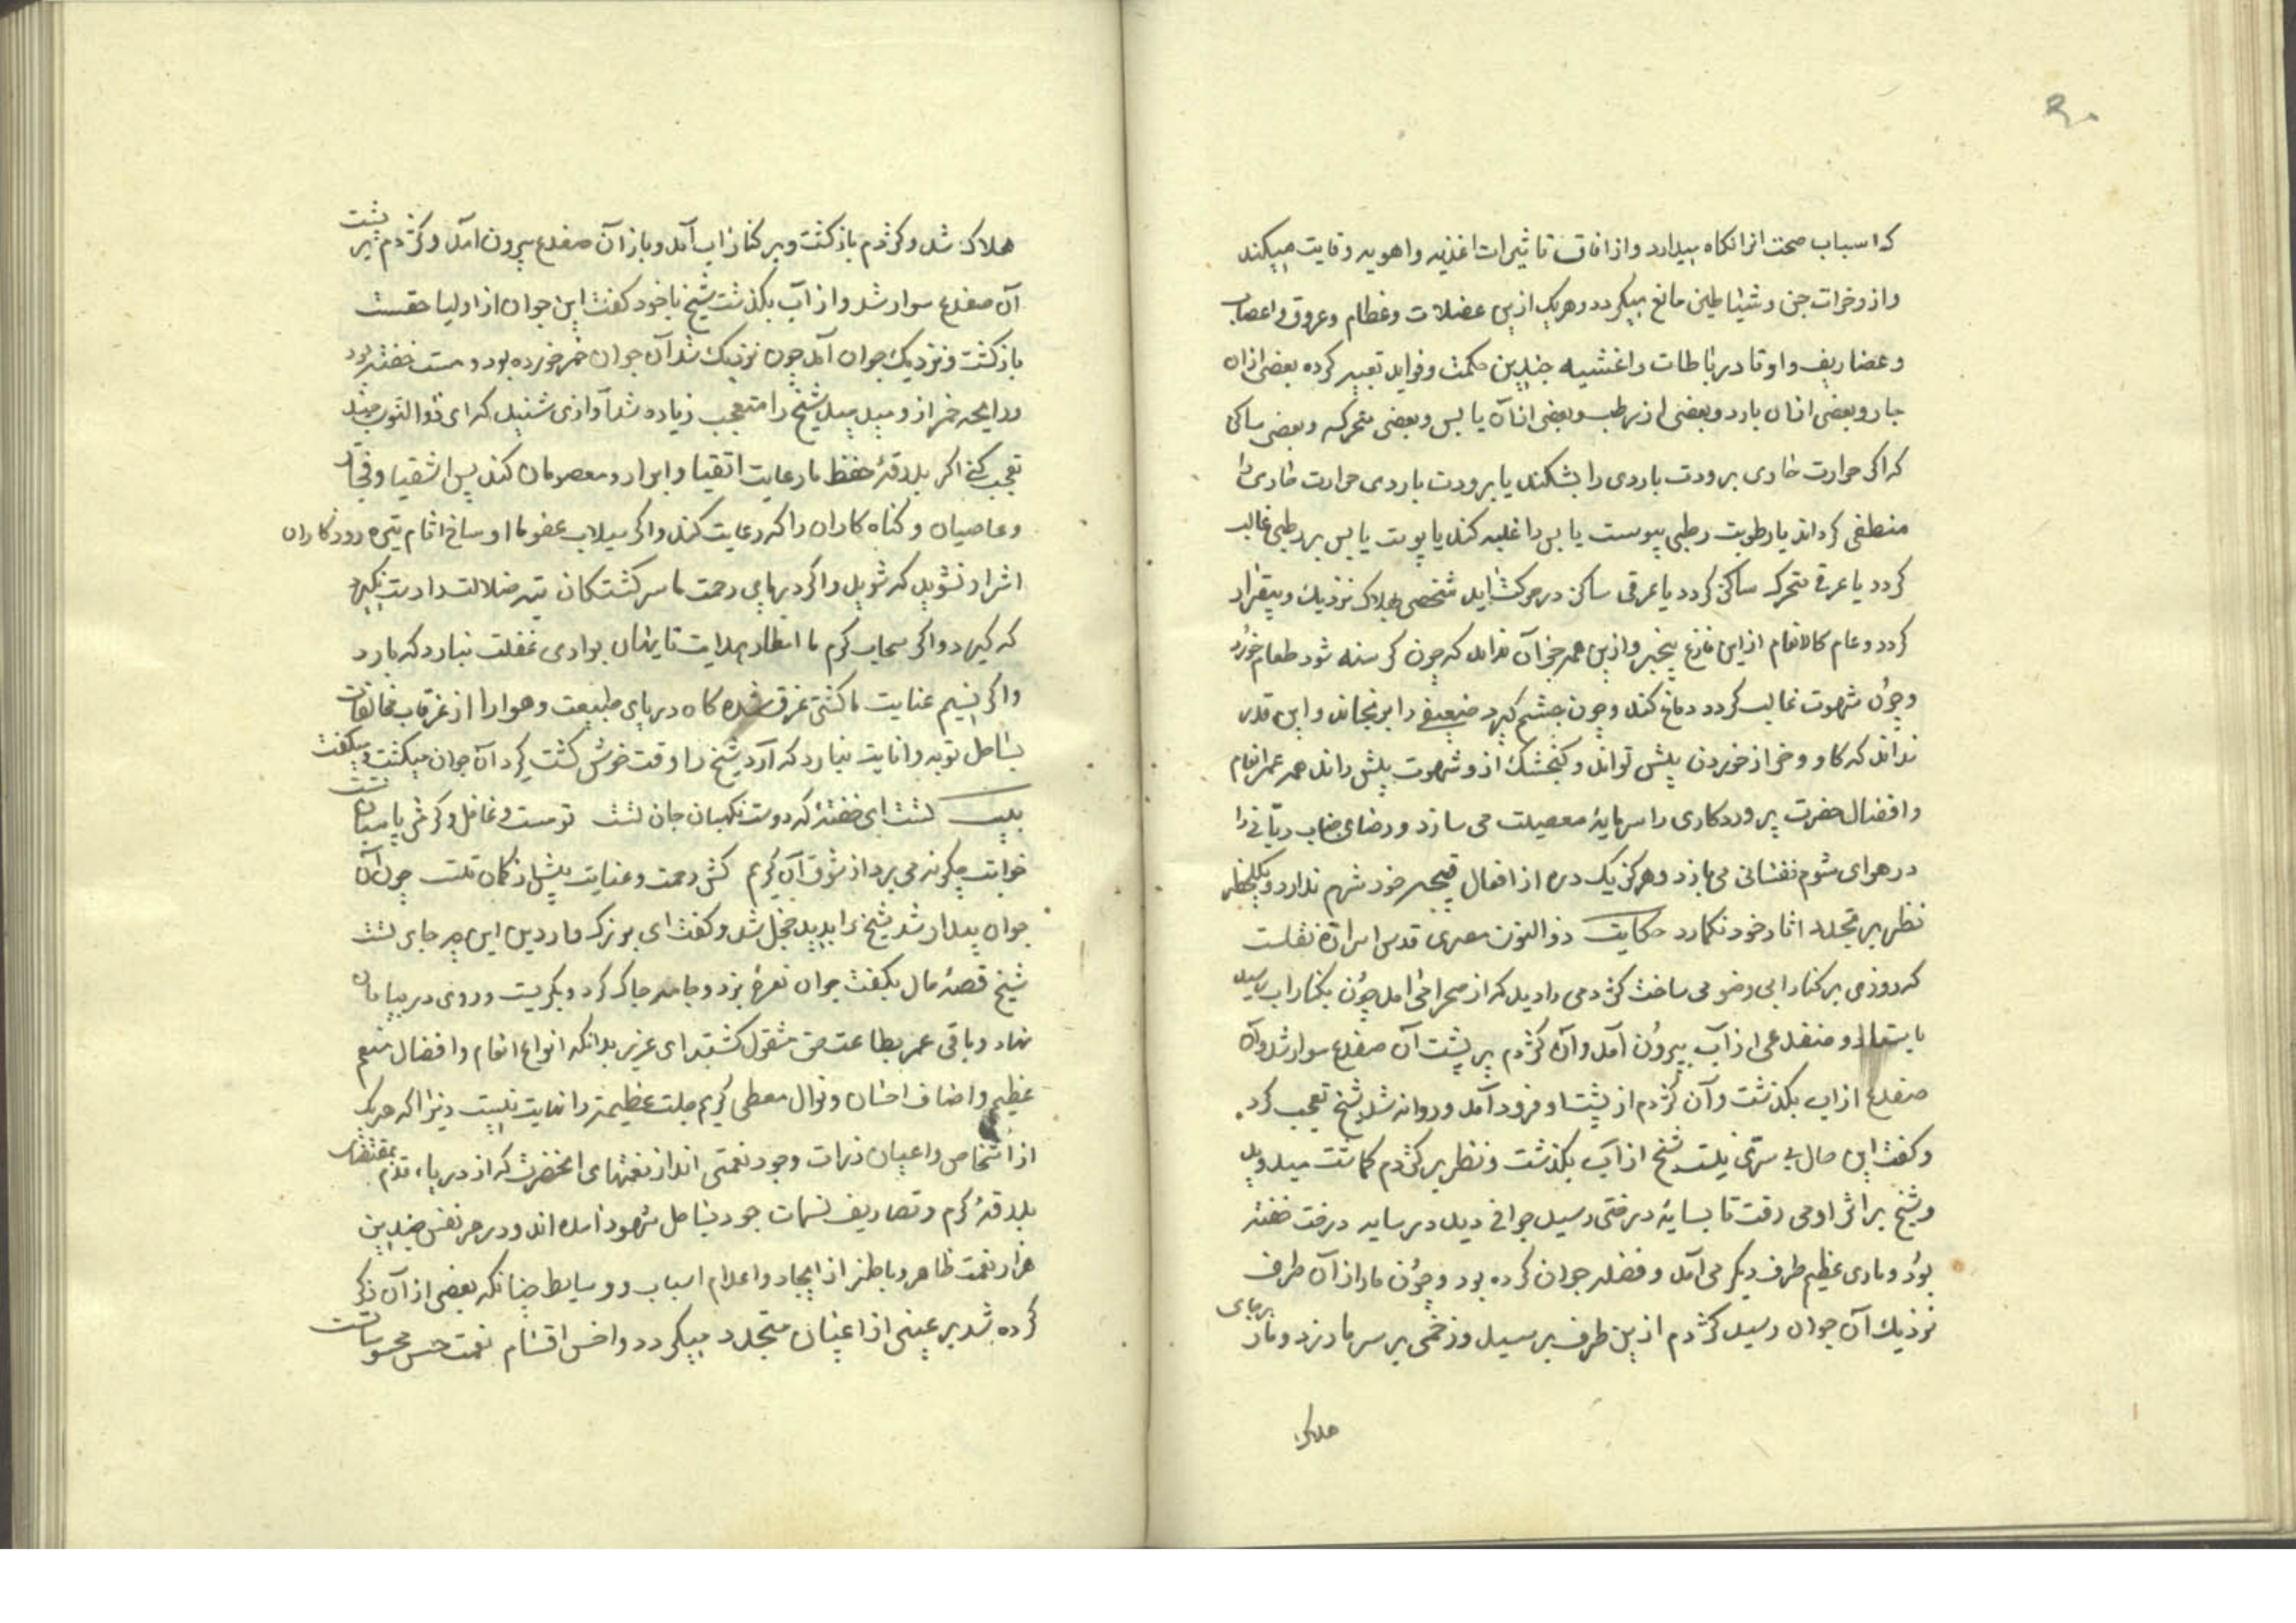 ۹۰
که اسباب صحت انرا نکاه میدارد و از افات تاثیرات اغذیه و اهویه وقایت میکند
و از وخزات جن و شیاطین مانع میکردد و هریک ازین عضلات و عظام و عروق و اعصاب
و غضاریف و اوتاد رباطات و اغشیه چندین حکمت و فواید تعبیه کرده بعضی ازان
حار و بعضی ازان بارد و بعضی از رطب و بعضی ازان یابس و بعضی متحرک و بعضی ساکن
که اکر حرارت حاری برودت باردی را بشکند یا برودت باردی حرارت حاری را
منطفی کرداند یا رطوبت رطبی یبوست یابس را غلبه کند یا یبوست یابس بر رطبی غالب
کردد یا عرقی متحرک ساکن کردد یا عرقی ساکن در حرکت اید شخص بهلاک نزدیک و بیقرار
کردد و عام کالانعام ازین فارغ و بیخبر و ازین همه جز آن نداند که چون کرسنه شود طعام خورد
و چون شهوت غالب کردد دفاع کند و چون خشم کیرد ضعیفی را برنجاند و این قدر
نداند که کاو و خر از خوردن بیش تواند و کنجشک ازو شهوت بیش راند همه عمر انعام
و افضال حضرت پروردکاری را سرمایه معصیت می سازد و رضای جناب ربانی را
در هوای شوم نفسانی می بازد و هرکز یک ذره از افعال قبیحه خود شرم ندارد و یکلحظه
نظر بر تجدد اثار خود نکمارد حکایت ذوالنون مصری قدس سره نقلست
که روزی بر کنار ابی وضو می ساخت کژدمی را دید که از صحرا می امد چون بکنار اب رسید
بایستاد و ضفدعی از آب بیرون آمد و آن کژدم بر پشت آن ضفدع سوار شد و آن
ضفدع از اب بکذشت و آن کژدم از پشت او فرود آمد و روانه شد شیخ تعجب کرد
و کفت این حال بی سرّی نیست شیخ از آب بکذشت و نظر بر کژدم کماشت میدوید
و شیخ بر اثر او می رفت تا بسایه درختی رسید جوانی دید در سایه درخت خفته
بود و ماری عظیم طرف دیکر می آمد و قصد جوان کرده بود و چون مار از آن طرف
نزدیک آن جوان رسید کژدم ازین طرف بر سید و زخمی بر سر مار زد و مار برجای
هلاک
هلاک شد و کژدم باز کشت و بر کنار اب آمد و باز آن ضفدع بیرون امد و کژدم بر پشت
آن ضفدع سوار شد و از آب بکذشت شیخ با خود کفت این جوان از اولیا حقست
باز کشت و نزدیک جوان آمد چون نزدیک شد آن جوان خمر خورده بود و مست خفته بود
و رایحه خمر ازو میدمید شیخ را تعجب زیاده شد آوازی شنید که ای ذوالنون چند
تعجب کنی اکر بدرقه حفظ ما رعایت اتقیا و ابرار و معصومان کند پس اشقیا و فجار
و عاصیان و کناه کاران را که رعایت کند و اکر سیلاب عفو ما اوساخ اثام تیره روزکاران
اشرار نشوید که شوید و اکر دریای رحمت ما سرکشتکان تیه ضلالت را دست نکیرد
که کیرد و اکر سحاب کرم ما امطار هدایت تا بنهان بوادی غفلت نبارد که بارد
و اکر نسیم عنایت ما کشتی غرق شده کاه دریای طبیعت و هوا را از غرقاب مخالفات
بساحل توبه و انابت نیارد که آرد شیخ را وقت خوش کشت کرد آن جوان میکشت و میکفت
بیت ای خفته که دوست نکهبان جان تست تو مست و غافل و کرمش پاسبان تست
خوابت چکونه می برد از شوق آن کریم کش رحمت و عنایت بیش از کمان تست چون آن
جوان بیدار شد شیخ را بدید خجل شد و کفت ای بزرک وار دین این چه جای تست
شیخ قصه مار بکفت جوان نعره بزد و جامه چاک کرد و بکریست و روی در بیابان
نهاد و باقی عمر بطاعت حق مشغول کشت ای عزیز بدانکه انواع انعام و افضال منعم
عظیم و اصناف احسان و نوال معطی کریم جلت عظمته را نهایت نیست زیرا که هریک
از اشخاص و اعیان ذرات وجود نعمتی اند از نعمتهای انحضرت که از دریاء قدم بمقتضاء
بدرقه کرم و تصاریف نسمات جود بساحل شهود امده اند و در هر نفس چندین
هزار نعمت ظاهر و باطن از ایجاد و اعدام اسباب و وسایط چنانکه بعضی از آن ذکر
کرده شد بر عینی از اعیان متجدد میکردد و اخس اقسام نعمت حس محسوسات است